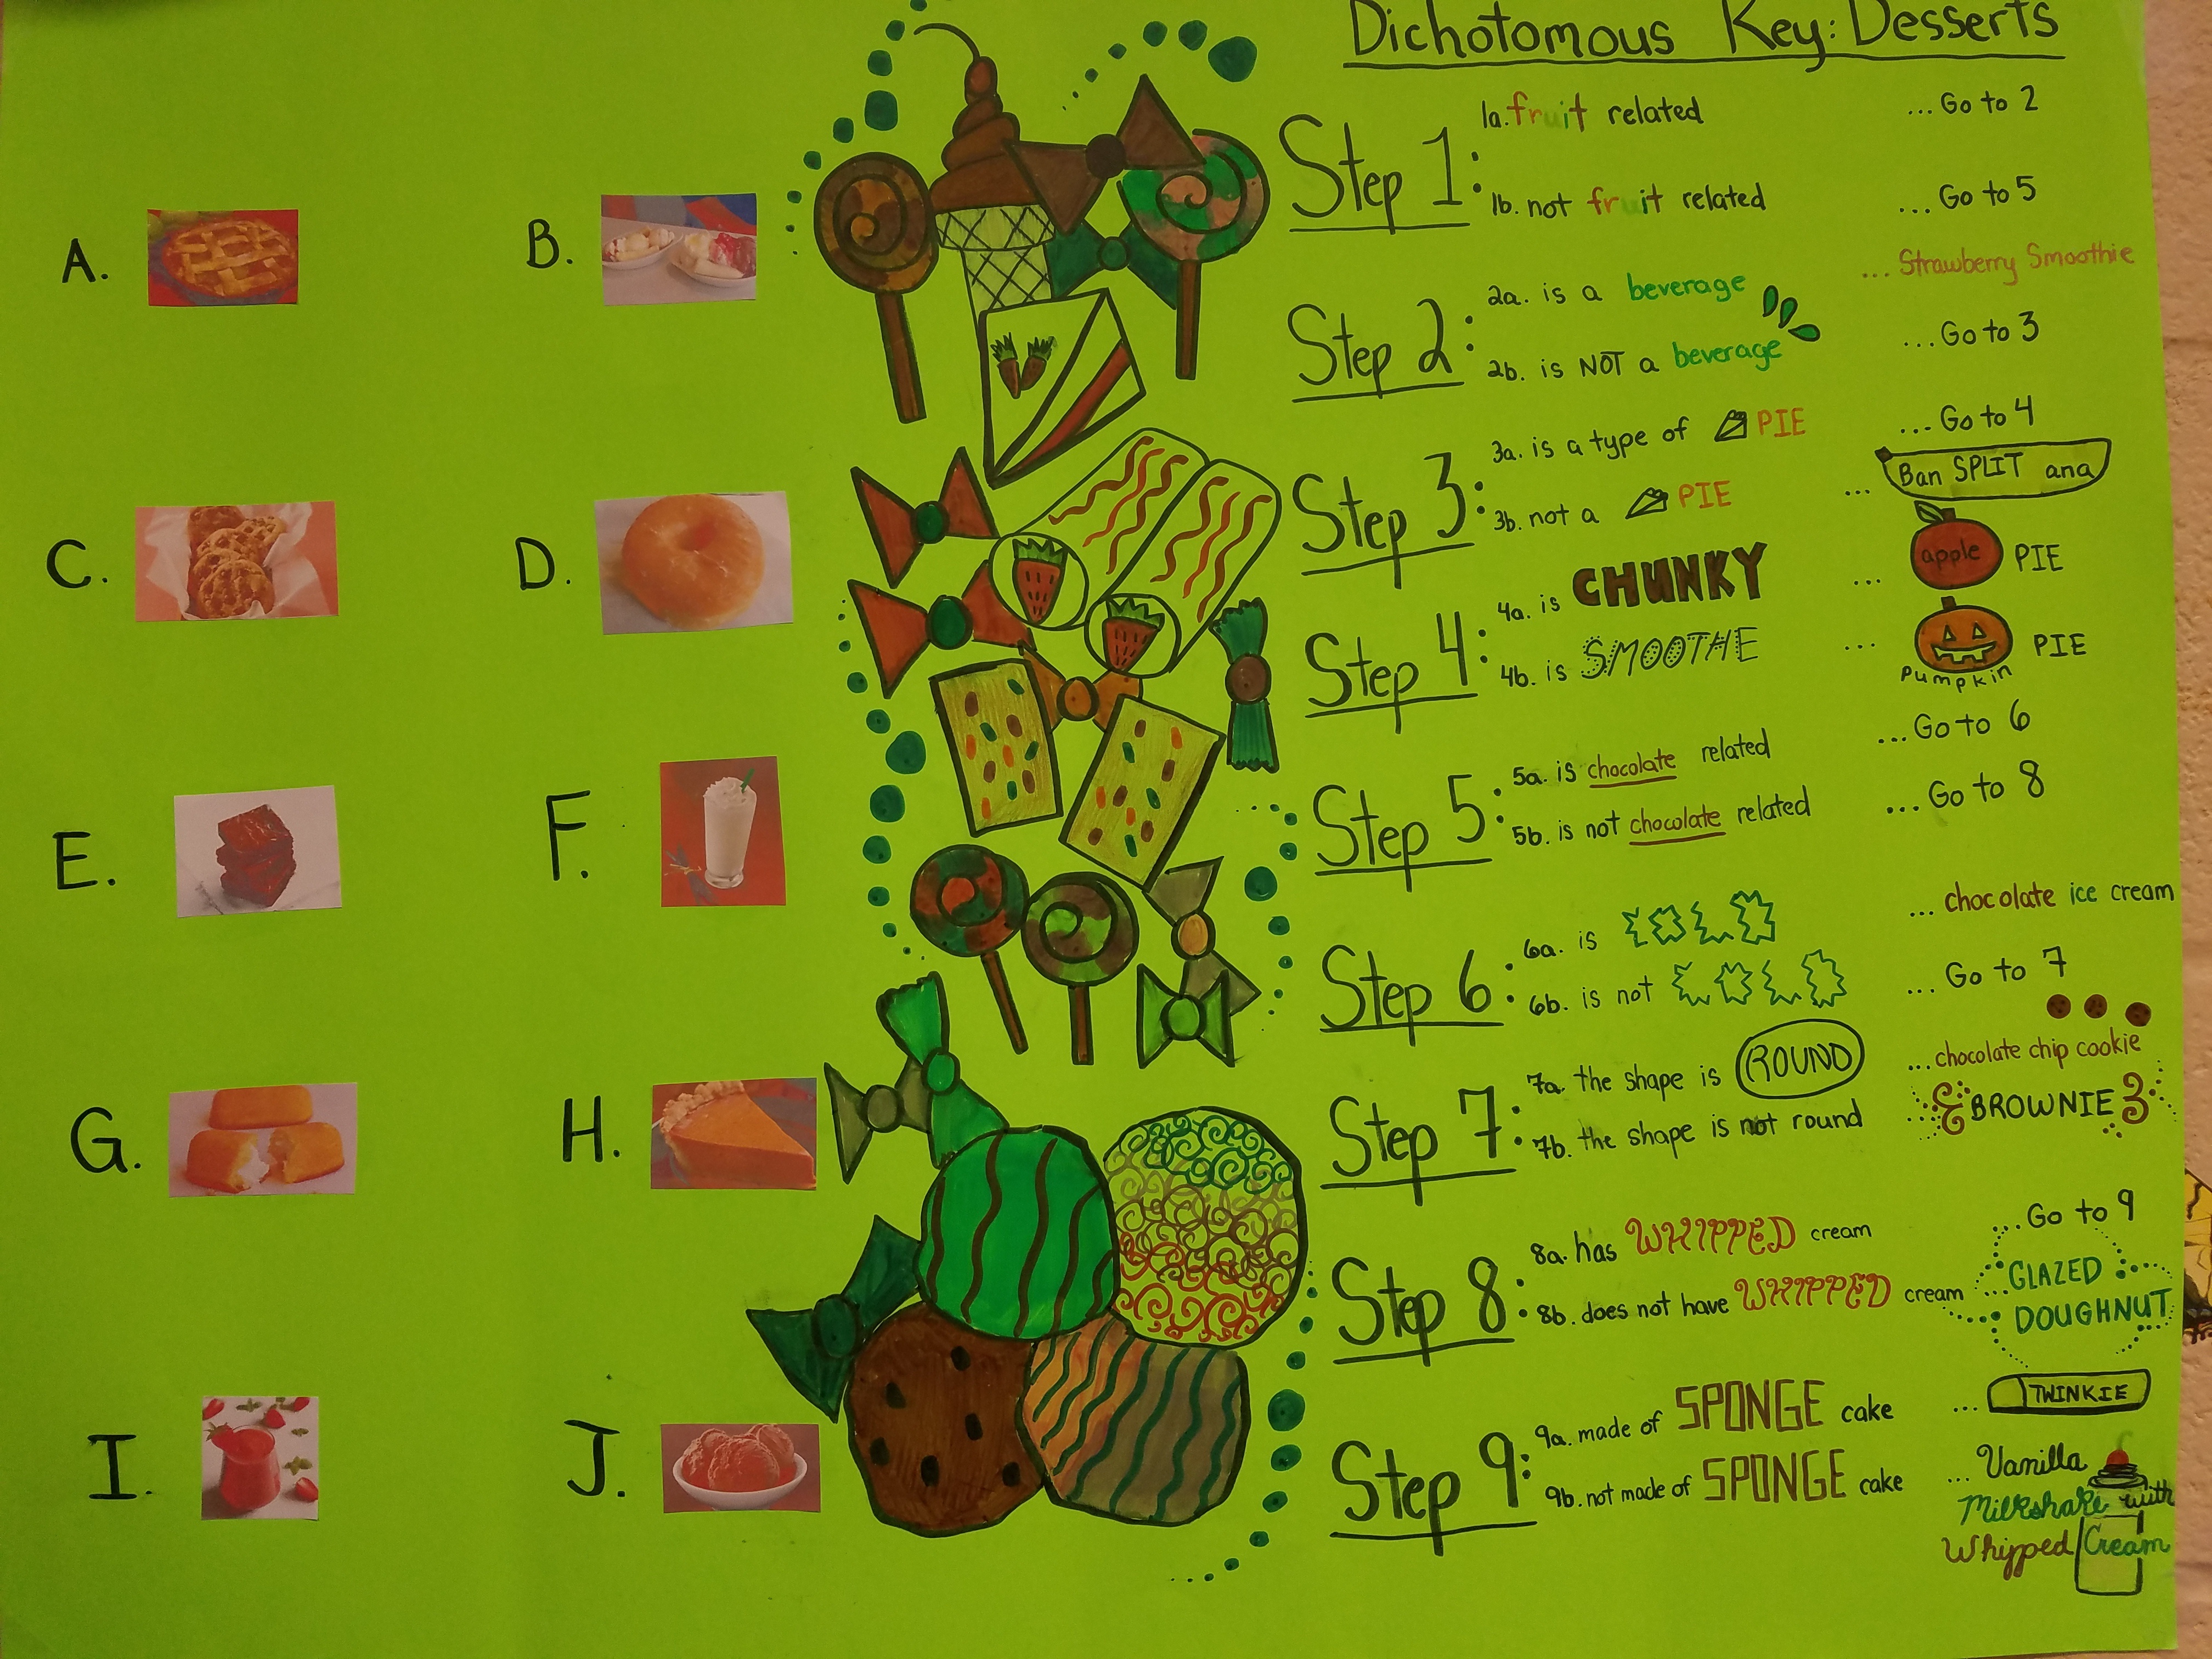 Dichotomous Key: Desserts
A.
B.
C.
D.
E.
F.
G.
H.
I.
J.
Step 1:
1a. fruit related ... Go to 2
1b. not fruit related ... Go to 5
Step 2:
2a. is a beverage ... Strawberry Smoothie
2b. is NOT a beverage ... Go to 3
Step 3:
3a. is a type of PIE ... Go to 4
3b. not a PIE ... Ban SPLIT ana
Step 4:
4a. is CHUNKY ... apple PIE
4b. is SMOOTHE ... Pumpkin PIE
Step 5:
5a. is chocolate related ... Go to 6
5b. is not chocolate related ... Go to 8
Step 6:
6a. is COLD ... chocolate ice cream
6b. is not COLD ... Go to 7
Step 7:
7a. the shape is ROUND ... chocolate chip cookie
7b. the shape is not round ... BROWNIE
Step 8:
8a. has WHIPPED cream ... Go to 9
8b. does not have WHIPPED cream ... GLAZED
DOUGHNUT
Step 9:
9a. made of SPONGE cake ... TWINKIE
9b. not made of SPONGE cake ... Vanilla
Milkshake with
Whipped Cream